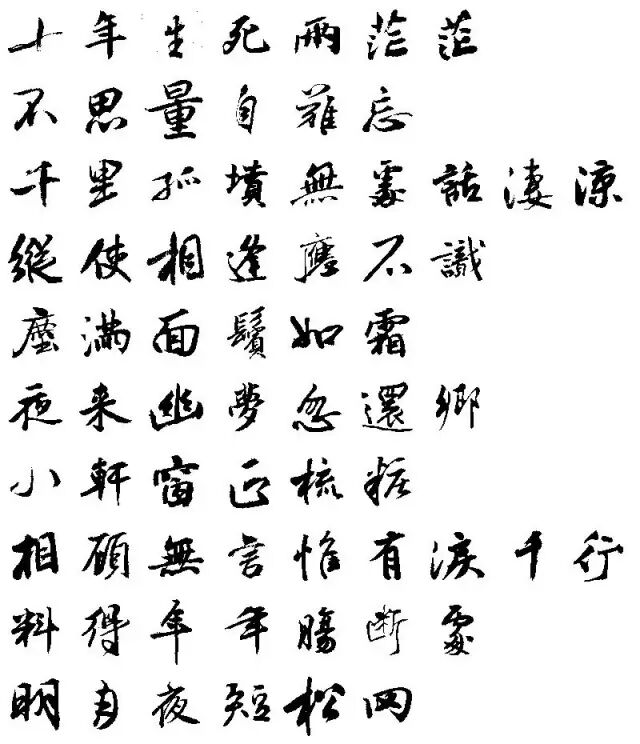 十年生死兩茫茫
不思量自難忘
千里孤墳無處話淒涼
縱使相逢應不識
塵滿面鬢如霜
夜来幽夢忽還鄉
小軒窗正梳粧
相顧無言惟有淚千行
料得年年腸断處
明月夜短松岡